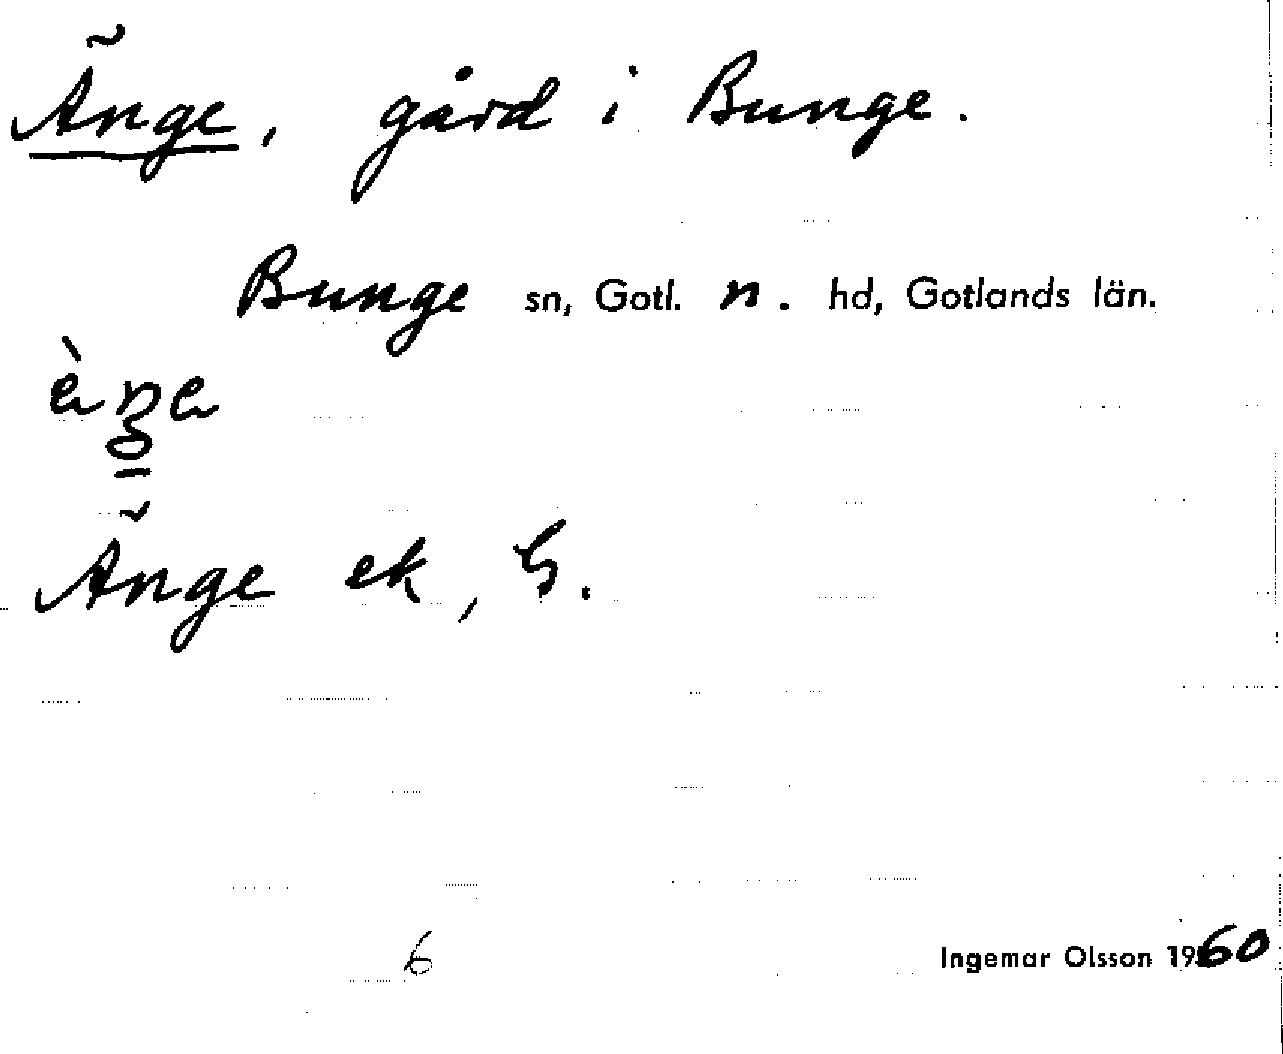 Änge, gård i Bunge.
Bunge sn, Gotl. n. hd, Gotlands län.
Änge ek, G.
6
Ingemar Olsson 1960